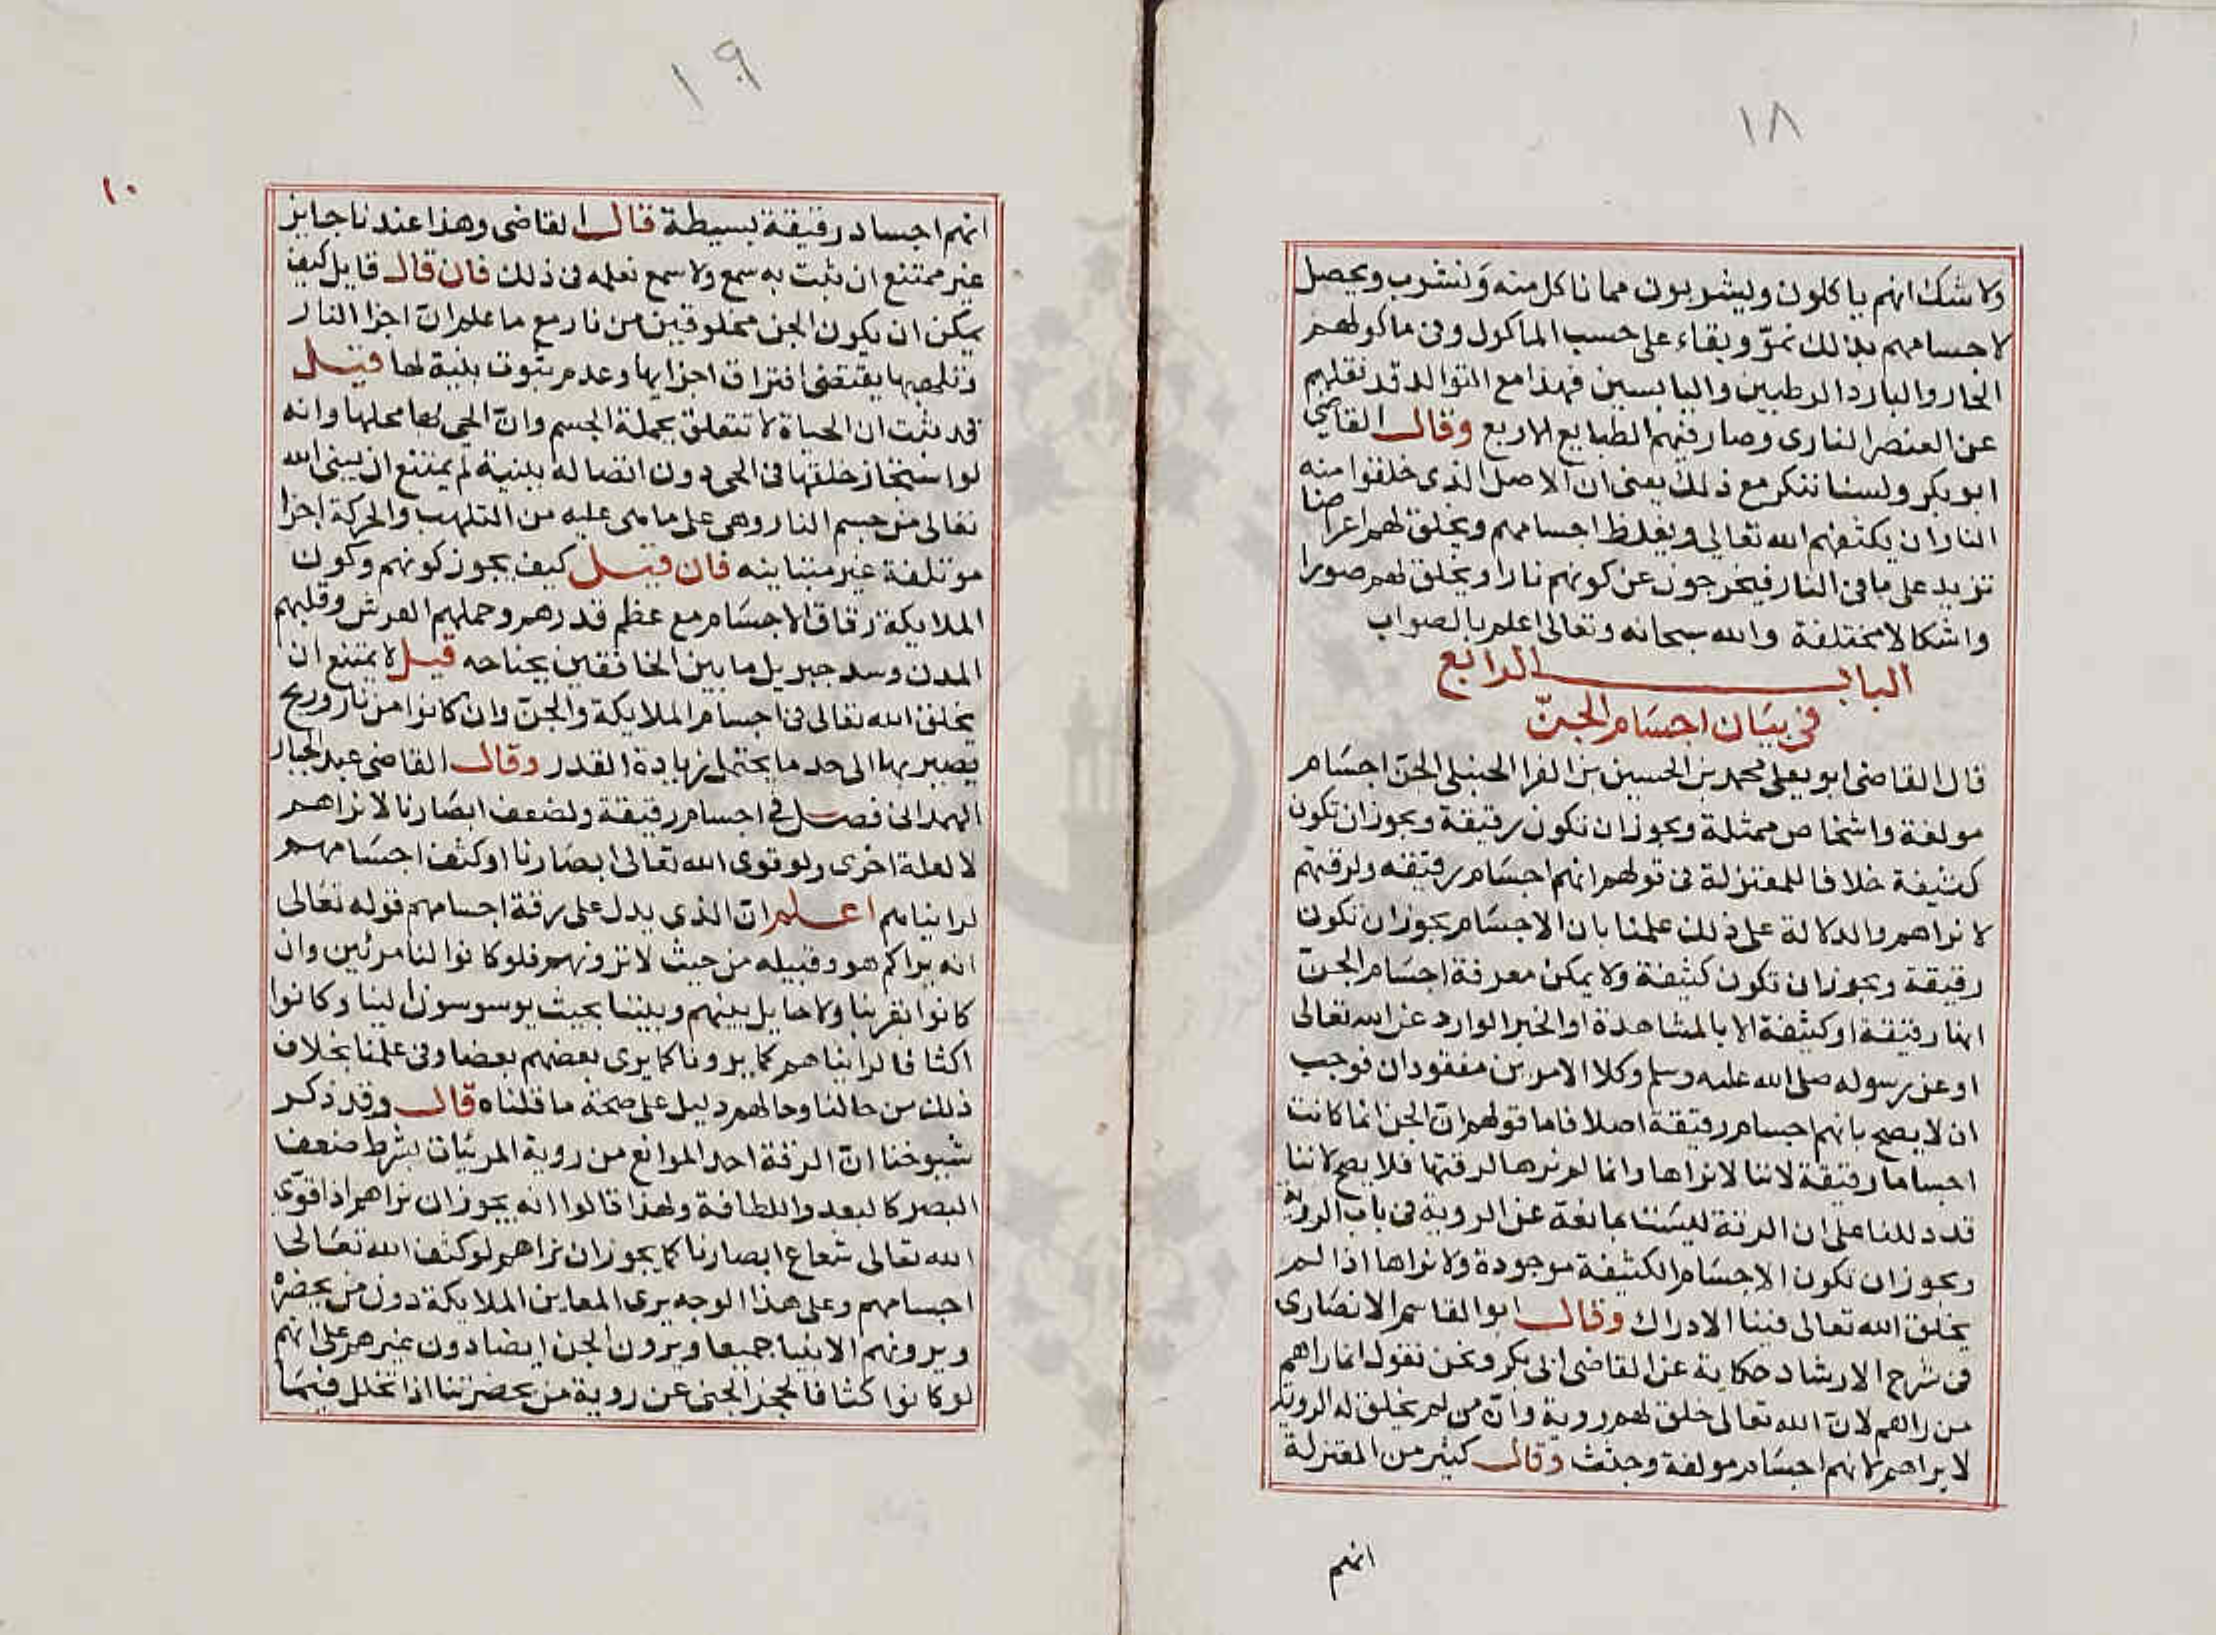 ١٨
ولا شك انهم ياكلون ويشربون مما ناكل منه ونشرب ويحصل
لاجسامهم بذلك نموّ وبقاء على حسب الماكول وفى ماكولهم
الحار والبارد الرطبين واليابسين فهذا مع التوالد قد نقلهم
عن العنصر النارى وصار فيهم الطبايع الاربع وقال القاضى
ابو بكر ولسنا ننكر مع ذلك يعنى ان الاصل الذى خلقوا منه
النار ان يكثفهم الله تعالى ويغلظ اجسامهم ويخلق لهم اعراضا
تزيد على ما فى النار فيخرجون عن كونهم نارا ويخلق لهم صورا
واشكالا مختلفة والله سبحانه وتعالى اعلم بالصواب
الباب الرابع
فى بيان اجسام الجنّ
قال القاضى ابو يعلى محمد بن الحسين بن الفرا الحنبلى الجن اجسام
مولفة واشخاص ممثلة ويجوز ان تكون رقيقة ويجوز ان تكون
كثيفة خلافا للمعتزلة فى قولهم انهم اجسام رقيقه ولرقتهم
لا نراهم والدلالة على ذلك علمنا بان الاجسام يجوز ان تكون
رقيقة ويجوز ان تكون كثيفة ولا يمكن معرفة اجسام الجنّ
انها رقيقة او كثيفة الا بالمشاهدة او الخبر الوارد عن الله تعالى
او عن رسوله صلى الله عليه وسلم وكلا الامرين مفقودان فوجب
ان لا يصح بانهم اجسام رقيقة اصلا فاما قولهم انّ الجن انما كانت
اجساما رقيقة لاننا لا نراها وانما لم نرها لرقتها فلا يصح لاننا
قد دللنا على ان الرقة ليست بمانعة عن الروية فى باب الروية
ويجوز ان تكون الاجسام الكثيفة موجودة ولا نراها اذا لم
يخلق الله تعالى فينا الادراك وقال ابو القاسم الانصارى
فى شرح الارشاد حكاية عن القاضى ابى بكر ونحن نقول انما راهم
من راهم لانّ الله تعالى خلق لهم روية وانّ من لم يخلق له الروية
لا يراهم لانهم اجسام مولفة وجثث وقال كثير من المعتزلة
انهم
١٩
١٠
انهم اجساد رقيقة بسيطة قال القاضى وهذا عندنا جايز
غير ممتنع ان ثبت به سمع ولا سمع نعلمه فى ذلك فان قال قايل كيف
يمكن ان يكون الجن مخلوقين من نار مع ما علم انّ اجزا النار
وتلهبها يقتضى افتراق اجزايها وعدم ثبوت بنية لها قيل
قد ثبت ان الحياة لا تتعلق بجملة الجسم وانّ الحى بها محلها وانه
لو استجاز خلقها فى الحى دون اتصاله ببنية لم يمتنع ان يبنى الله
تعالى من جسم النار وهى على ما هى عليه من التلهب والحركة اجزا
موتلفة غير متباينه فان قيل كيف يجوز كونهم وكون
الملايكة رقاق الاجسام مع عظم قدرهم وحملهم العرش وقلبهم
المدن وسد جبريل ما بين الخافقين بجناحه قيل لا يمتنع ان
يخلق الله تعالى فى اجسام الملايكة والجنّ وان كانوا من نار وريح
يصير بها الى حد ما يحتمل زيادة القدر وقال القاضى عبد الجبار
الهمدانى فصل فى اجسام رقيقة ولضعف ابصارنا لا نراهم
لا لعلة اخرى ولو قوى الله تعالى ابصارنا او كثف اجسامهم
لرايناهم اعلم انّ الذى يدل على رقة اجسامهم قوله تعالى
انه يراكم هو وقبيله من حيث لا ترونهم فلو كانوا لنا مرئين وان
كانوا بقربنا ولا حايل بينهم وبيننا بحيث يوسوسون الينا وكانوا
اكثافا لرايناهم كما يرونا كما يرى بعضهم بعضا وفى علمنا بخلاف
ذلك من حالنا وحالهم دليل على صحة ما قلناه قال وقد ذكر
شيوخنا انّ الرقة احد الموانع من روية المرئيات بشرط ضعف
البصر كالبعد واللطافة ولهذا قالوا انه يجوز ان نراهم اذا قوّى
الله تعالى شعاع ابصارنا كما يجوز ان نراهم لو كثف الله تعالى
اجسامهم وعلى هذا الوجه يرى المعاين الملايكة دون من يحضره
ويرونهم الانبيا جميعا ويرون الجن ايضا دون غيرهم على انهم
لو كانوا كثافا لحجز الجنى عن روية من يحضرنا اذا تخلل فيما